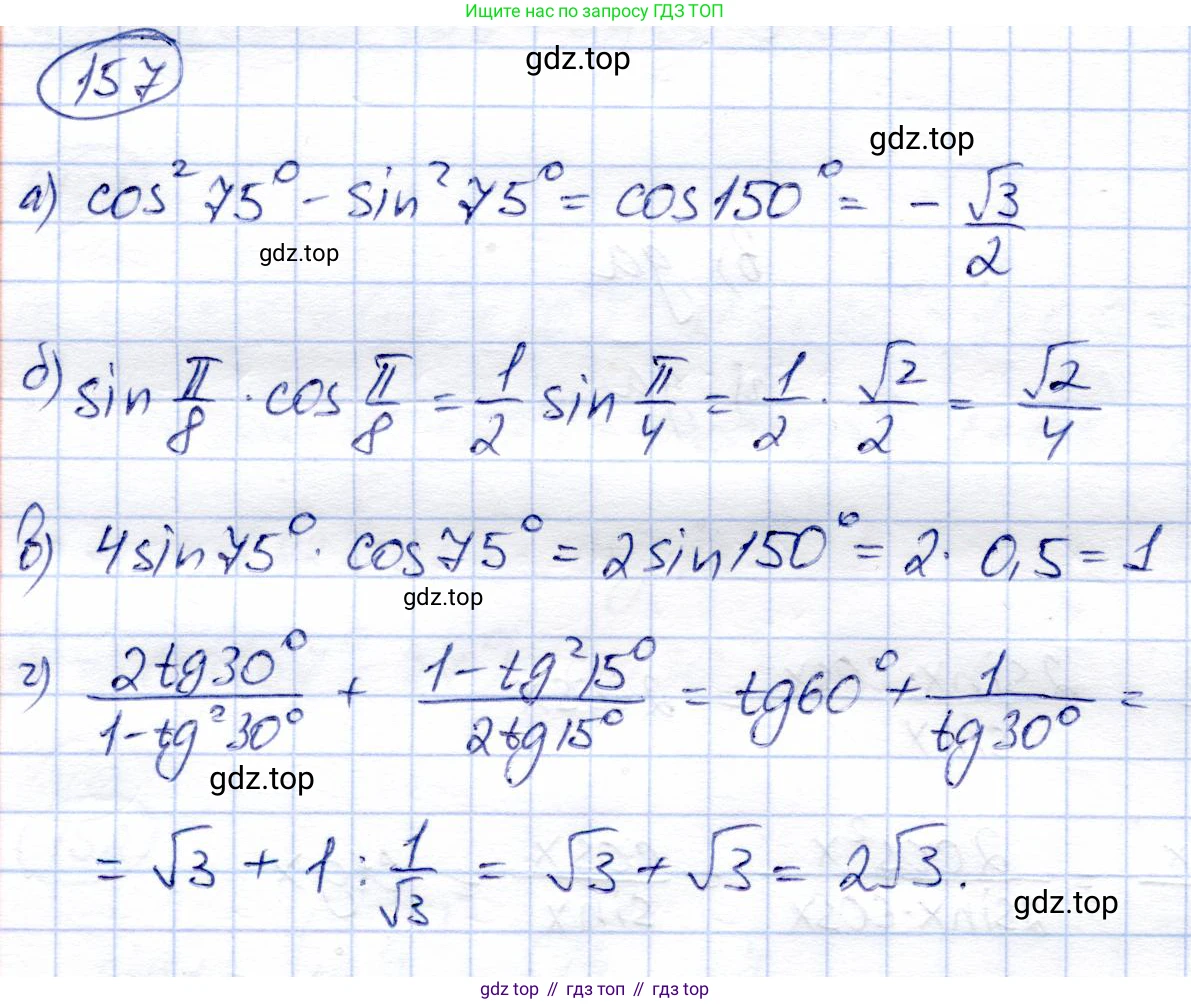 Ищите нас по запросу ГДЗ ТОП
157
gdz.top
gdz.top
а) cos² 75° - sin² 75° = cos 150° = - √3/2
gdz.top
б) sin π/8 · cos π/8 = 1/2 sin π/4 = 1/2 · √2/2 = √2/4
в) 4 sin 75° · cos 75° = 2 sin 150° = 2 · 0,5 = 1
gdz.top
г) 2tg30°/1-tg²30° + 1-tg²15°/2tg15° = tg60° + 1/tg30° =
gdz.top
= √3 + 1 : 1/√3 = √3 + √3 = 2√3.
gdz.top
gdz.top // гдз топ // гдз top